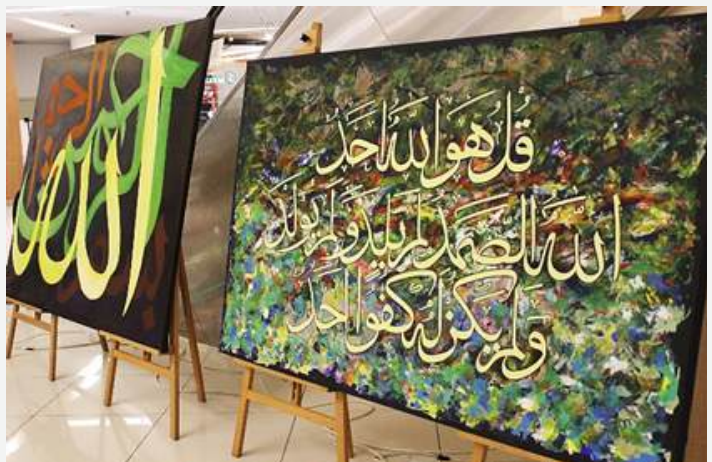 قُل هُوَ اللهُ اَحَد
اَللهُ الصَّمَد لَم يَلِد وَلَم يُولَد
وَلَم يَكُن لَه كُفُوا حَد
الله